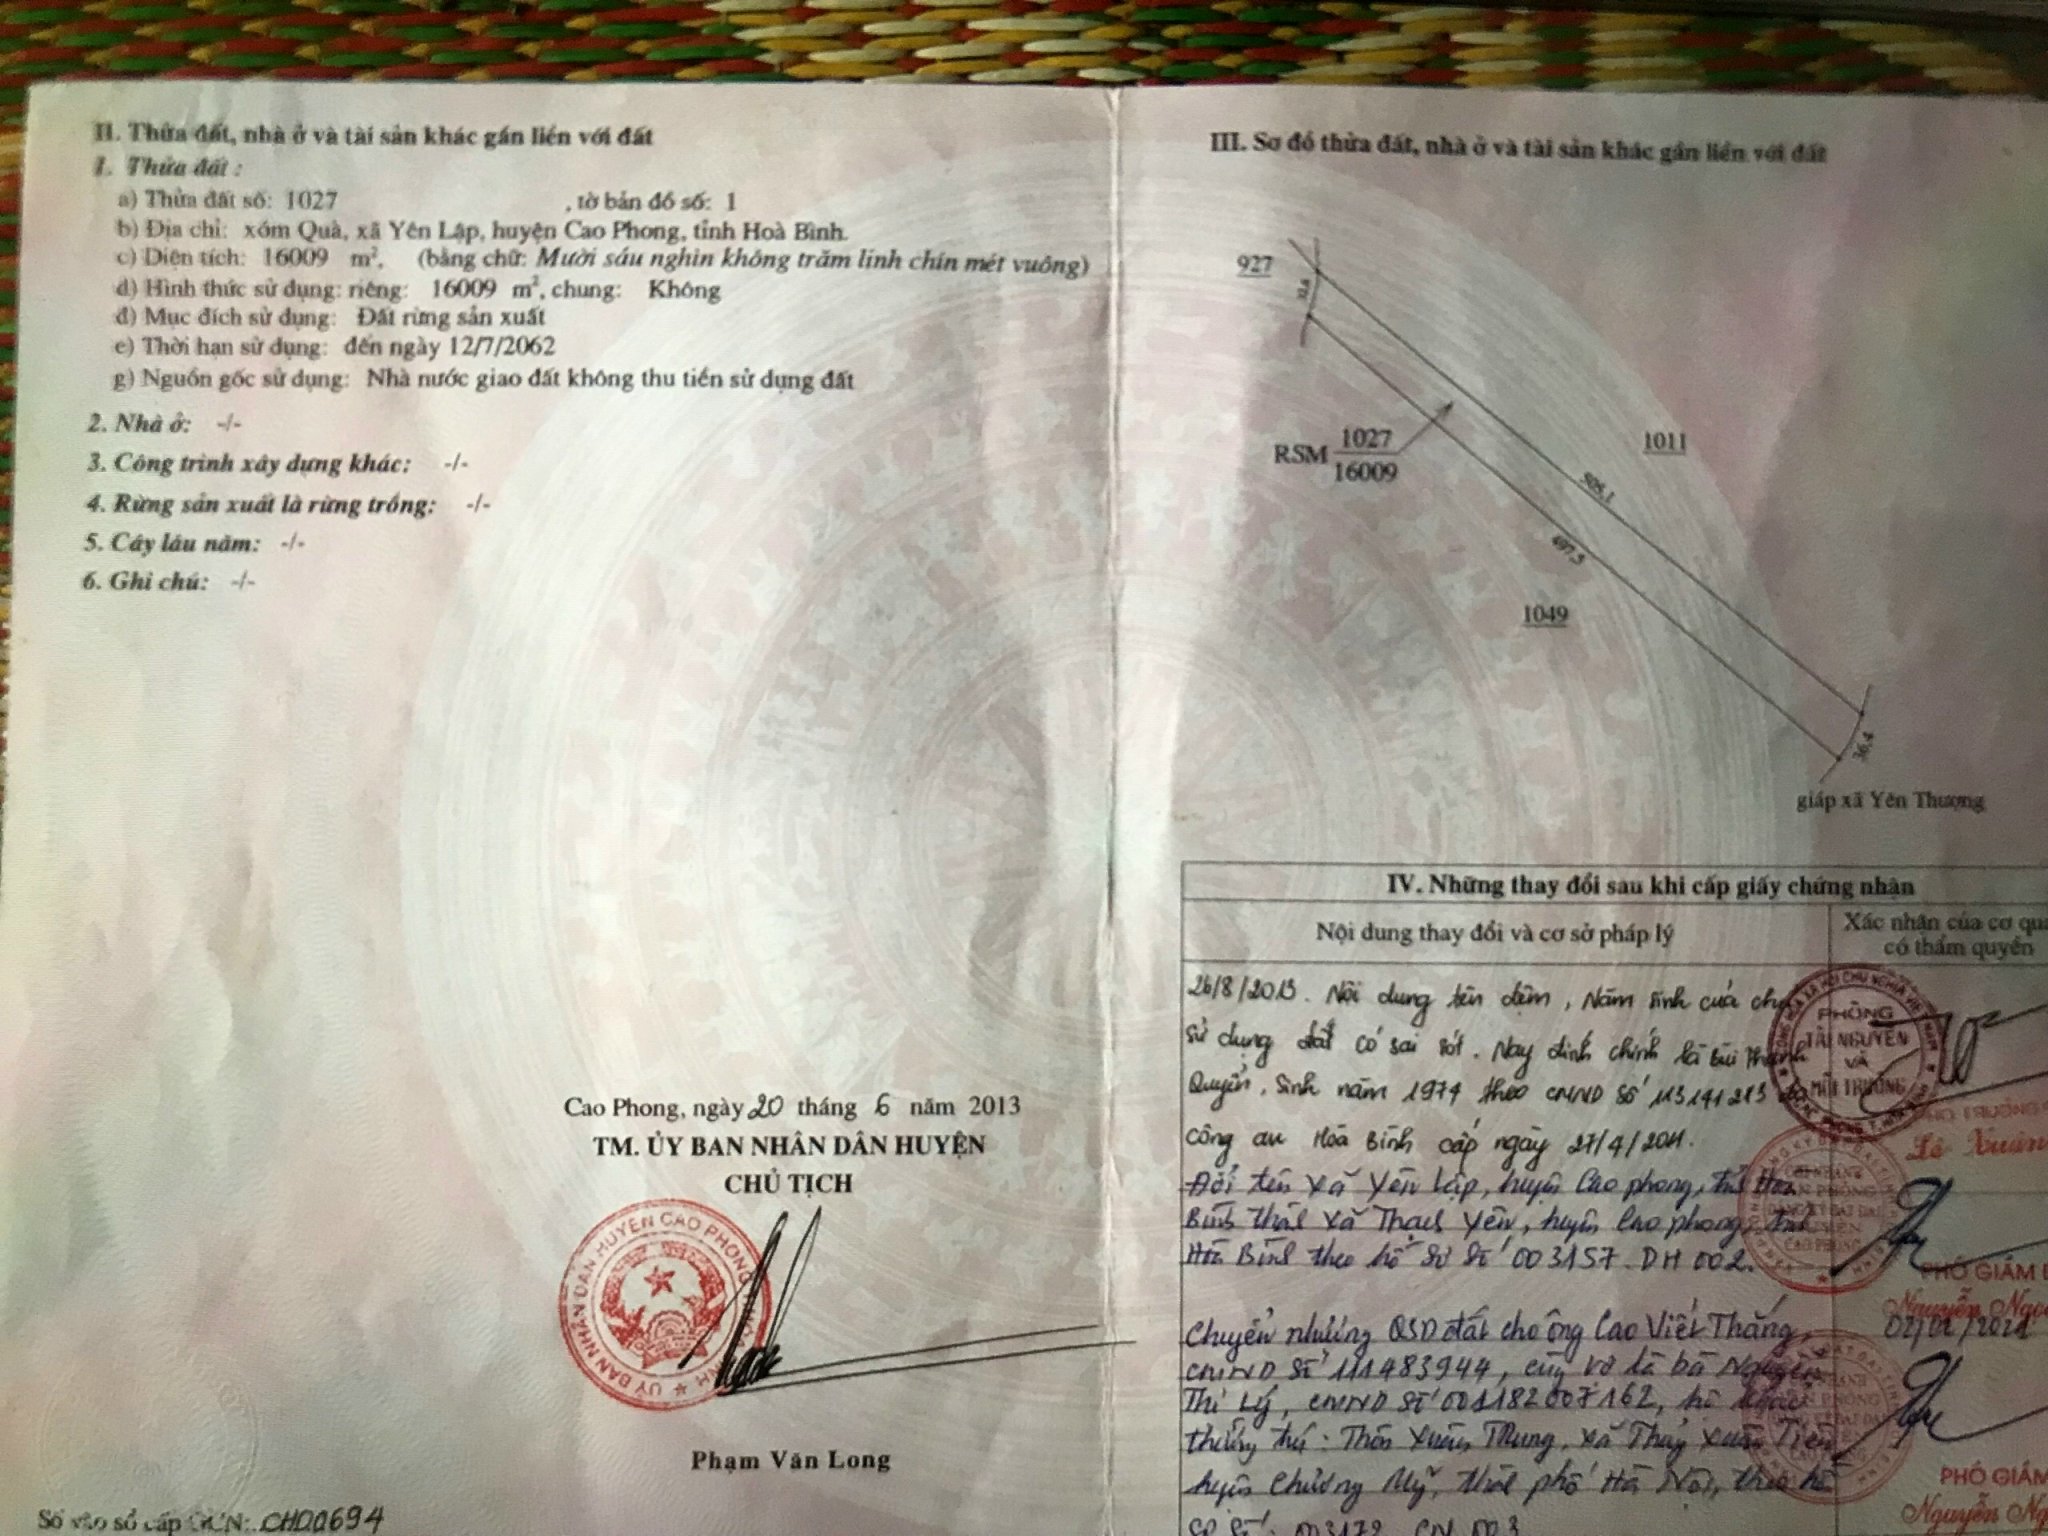 II. Thửa đất, nhà ở và tài sản khác gắn liền với đất
1. Thửa đất :
a) Thửa đất số: 1027 , tờ bản đồ số: 1
b) Địa chỉ: xóm Quà, xã Yên Lập, huyện Cao Phong, tỉnh Hoà Bình.
c) Diện tích: 16009 m², (bằng chữ: Mười sáu nghìn không trăm linh chín mét vuông)
d) Hình thức sử dụng: riêng: 16009 m², chung: Không
đ) Mục đích sử dụng: Đất rừng sản xuất
e) Thời hạn sử dụng: đến ngày 12/7/2062
g) Nguồn gốc sử dụng: Nhà nước giao đất không thu tiền sử dụng đất
2. Nhà ở: -/-
3. Công trình xây dựng khác: -/-
4. Rừng sản xuất là rừng trồng: -/-
5. Cây lâu năm: -/-
6. Ghi chú: -/-
Cao Phong, ngày 20 tháng 6 năm 2013
TM. ỦY BAN NHÂN DÂN HUYỆN
CHỦ TỊCH
ỦY BAN NHÂN DÂN HUYỆN CAO PHONG
Phạm Văn Long
Số vào sổ cấp GCN: CH00694
III. Sơ đồ thửa đất, nhà ở và tài sản khác gắn liền với đất
927
1011
RSM 1027
16009
505,1
497,5
1049
36,4
giáp xã Yên Thượng
IV. Những thay đổi sau khi cấp giấy chứng nhận
Nội dung thay đổi và cơ sở pháp lý
Xác nhận của cơ qu
có thẩm quyền
26/8/2013. Nội dung tên đệm, Năm sinh của chủ
sử dụng đất có sai sót. Nay đính chính là Bùi Thanh
Quyền, Sinh năm 1974 theo CMND số 113141213 do
Công an Hòa Bình cấp ngày 27/4/2011.
PHÒNG
TÀI NGUYÊN
VÀ
MÔI TRƯỜNG
Lê Xuân
Đổi tên xã Yên Lập, huyện Cao phong, tỉnh Hòa
Bình thành xã Thạch Yên, huyện Cao phong, tỉnh
Hòa Bình theo hồ sơ số 003157.DH 002.
PHÓ GIÁM
Nguyễn Ngọ
02/02/2021
Chuyển nhượng QSD đất cho ông Cao Viết Thắng,
CMND số 111483944, cùng vợ là bà Nguyễn
Thị Lý, CMND số 001182007162, hộ khẩu
thường trú: Thôn Xuân Trung, xã Thủy Xuân Tiên
huyện Chương Mỹ, thành phố Hà Nội, theo hồ
sơ số: 003172. CN 003
PHÓ GIÁM
Nguyễn Ngọ